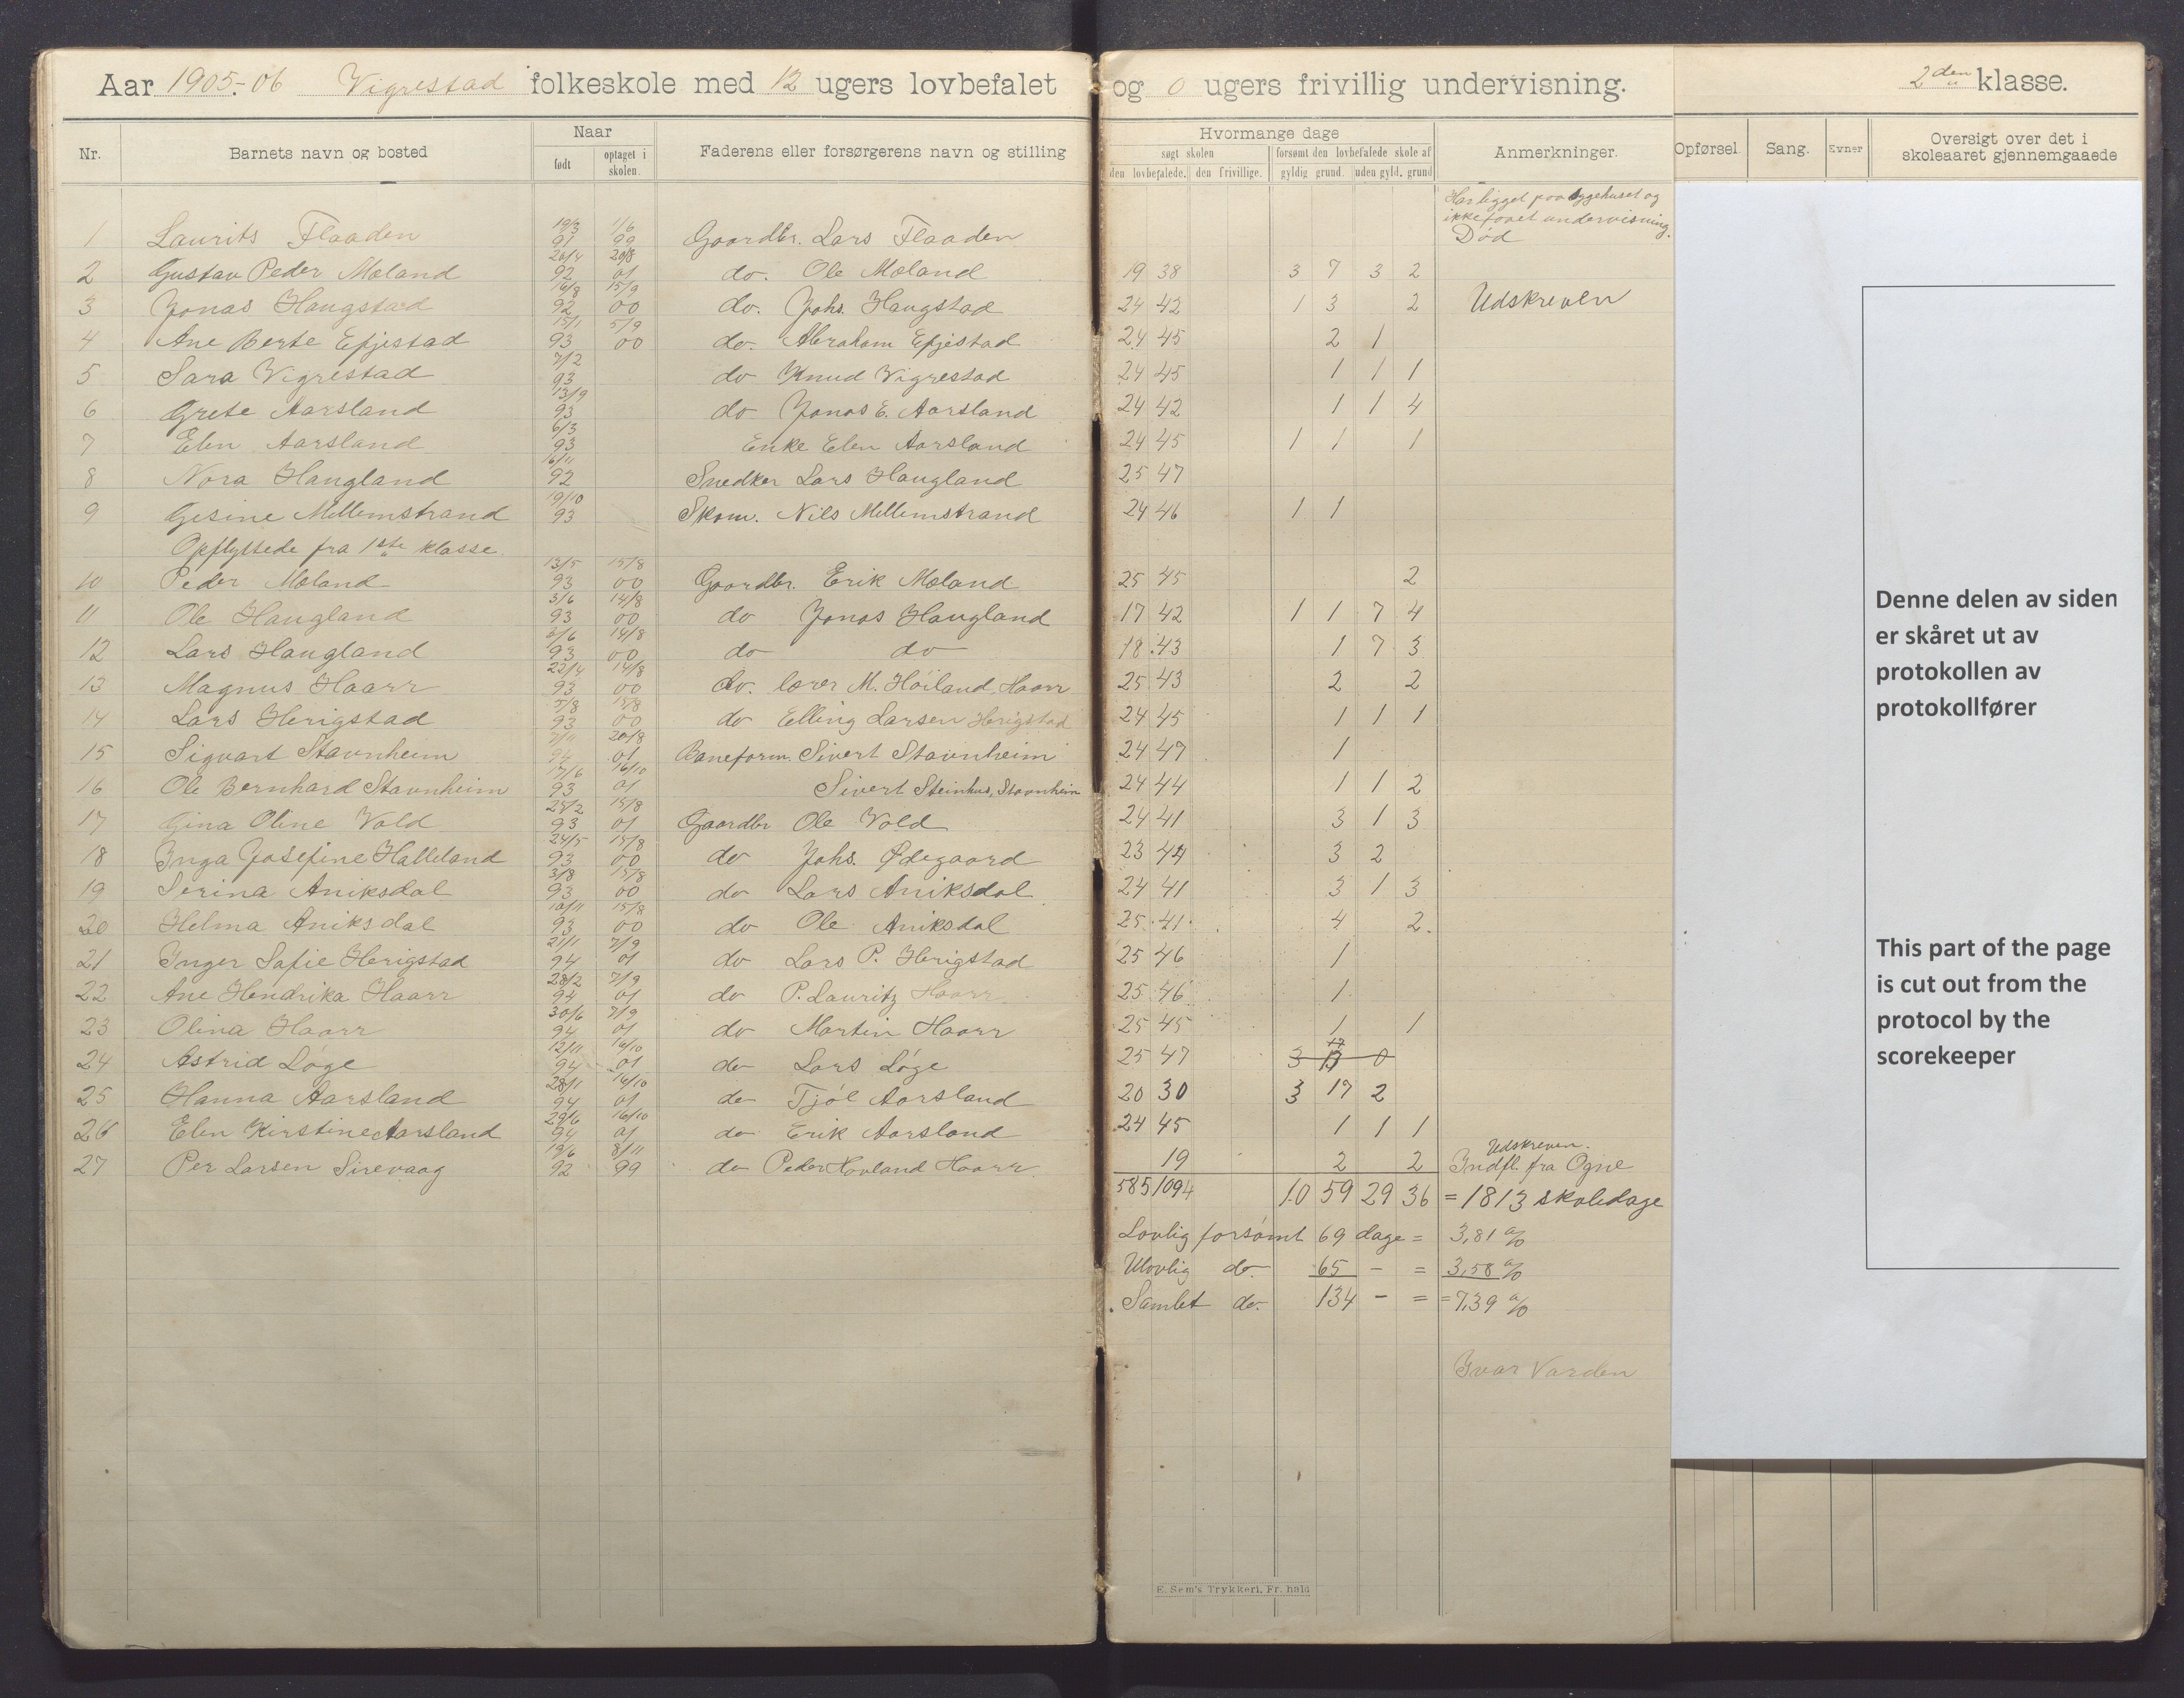 Aar 1905-06 Vigrestad folkeskole med 12 ugers lovbefalet og 0 ugers frivillig undervisning. 2den klasse.
Nr. Barnets navn og bosted Naar født optaget i skolen. Faderens eller forsørgerens navn og stilling
Hvormange dage
søgt skolen forsømt den lovbefalede skole af
den lovbefalede. den frivillige. gyldig grund. uden gyld. grund
Anmerkninger.
Opførsel. Sang. Evner Oversigt over det i skoleaaret gjennemgaaede
1 Laurits Flaaden 19/3 91 1/6 99 Gaardbr. Lars Flaaden Har ligget paa sygehuset og ikke faaet undervisning. Død
2 Gustav Peder Moland 20/4 92 20/8 01 do. Ole Moland 19 38 3 7 3 2
3 Jonas Haugstad 16/8 92 15/9 00 do. Johs. Haugstad 24 42 1 3 2 Udskreven
4 Ane Berte Efjestad 15/1 93 5/9 00 do. Abraham Efjestad 24 45 2 1
5 Sara Vigrestad 7/2 93 do Knud Vigrestad 24 45 1 1 1
6 Grete Aarsland 13/9 93 do Jonas E. Aarsland 24 42 1 1 4
7 Elen Aarsland 6/3 93 Enke Elen Aarsland 24 45 1 1 1
8 Nora Haugland 16/11 92 Snedker Lars Haugland 25 47
9 Gesine Mellemstrand 19/10 93 Skom. Nils Mellemstrand 24 46 1 1
Opflyttede fra 1ste klasse
10 Peder Moland 13/5 93 15/8 00 Gaardbr. Erik Moland 25 45 2
11 Ole Haugland 3/6 93 14/8 00 do Jonas Haugland 17 42 1 1 7 4
12 Lars Haugland 3/6 93 14/8 00 do do 18 43 1 7 3
13 Magnus Haarr 22/4 93 14/8 00 do. lærer M. Høiland Haarr 25 43 2 2
14 Lars Herigstad 7/8 93 15/8 00 do Elling Larsen Herigstad 24 45 1 1 1
15 Sigvart Stavnheim 7/11 94 20/8 01 Baneform. Sivert Stavnheim 24 47 1
16 Ole Bernhard Stavnheim 17/6 93 16/10 01 Sivert Steinhus, Stavnheim 24 44 1 1 2
17 Gina Oline Vold 25/2 93 15/8 01 Gaardbr Ole Vold 24 41 3 1 3
18 Inga Josefine Halleland 24/5 93 15/8 00 do Johs. Ødegaard 23 44 3 2
19 Serina Aniksdal 3/8 93 15/8 00 do Lars Aniksdal 24 41 3 1 3
20 Helma Aniksdal 10/11 93 15/8 00 do Ole Aniksdal 25 41 4 2
21 Inger Sofie Herigstad 21/1 94 7/9 01 do Lars P. Herigstad 25 46 1
22 Ane Hendrika Haarr 28/2 94 7/9 01 do P. Lauritz Haarr 25 46 1
23 Olina Haarr 30/6 94 7/9 01 do Martin Haarr 25 45 1 1
24 Astrid Løge 12/11 94 16/10 01 do Lars Løge 25 47
25 Hanna Aarsland 28/11 94 16/10 01 do Tjøl Aarsland 20 30 3 17 2
26 Elen Kirstine Aarsland 29/6 94 16/10 01 do Erik Aarsland 24 45 1 1 1
27 Per Larsen Sirevaag 19/6 92 8/11 99 do Peder Hovland Haarr 19 2 2 Udskreven. Indfl. fra Ogne
585 1094 10 59 29 36 = 1813 skoledage
Lovlig forsømt 69 dage = 3,81 %
Ulovlig do. 65 - = 3,58 %
Samlet do. 134 - = 7,39 %
Ivar Varden
E. Sem's Trykkeri, Fr.hald
Denne delen av siden
er skåret ut av
protokollen av
protokollfører
This part of the page
is cut out from the
protocol by the
scorekeeper